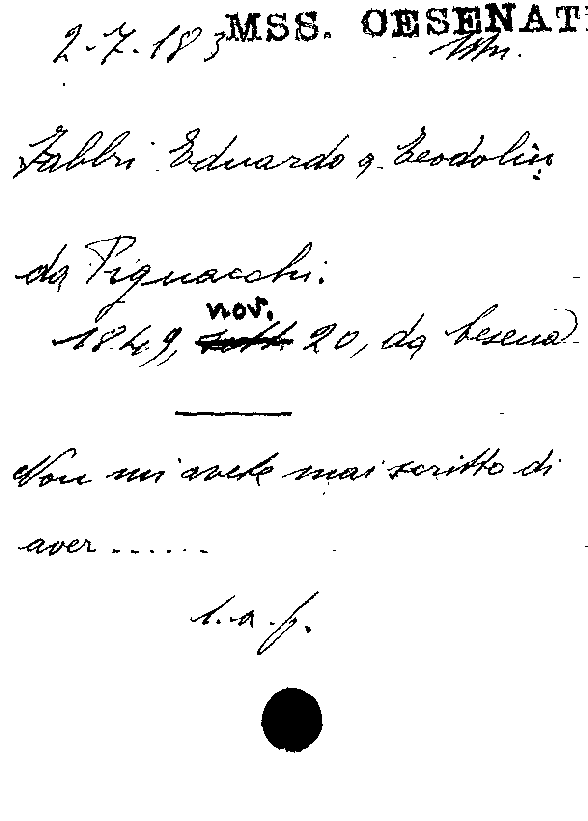 MSS. CESENATI
2-7-183
Fabbri Eduardo a Teodolin
da Pignacchi.
nov.
1849, sett. 20, da Cesena
Non mi avete mai scritto di
aver ......
l. a f.